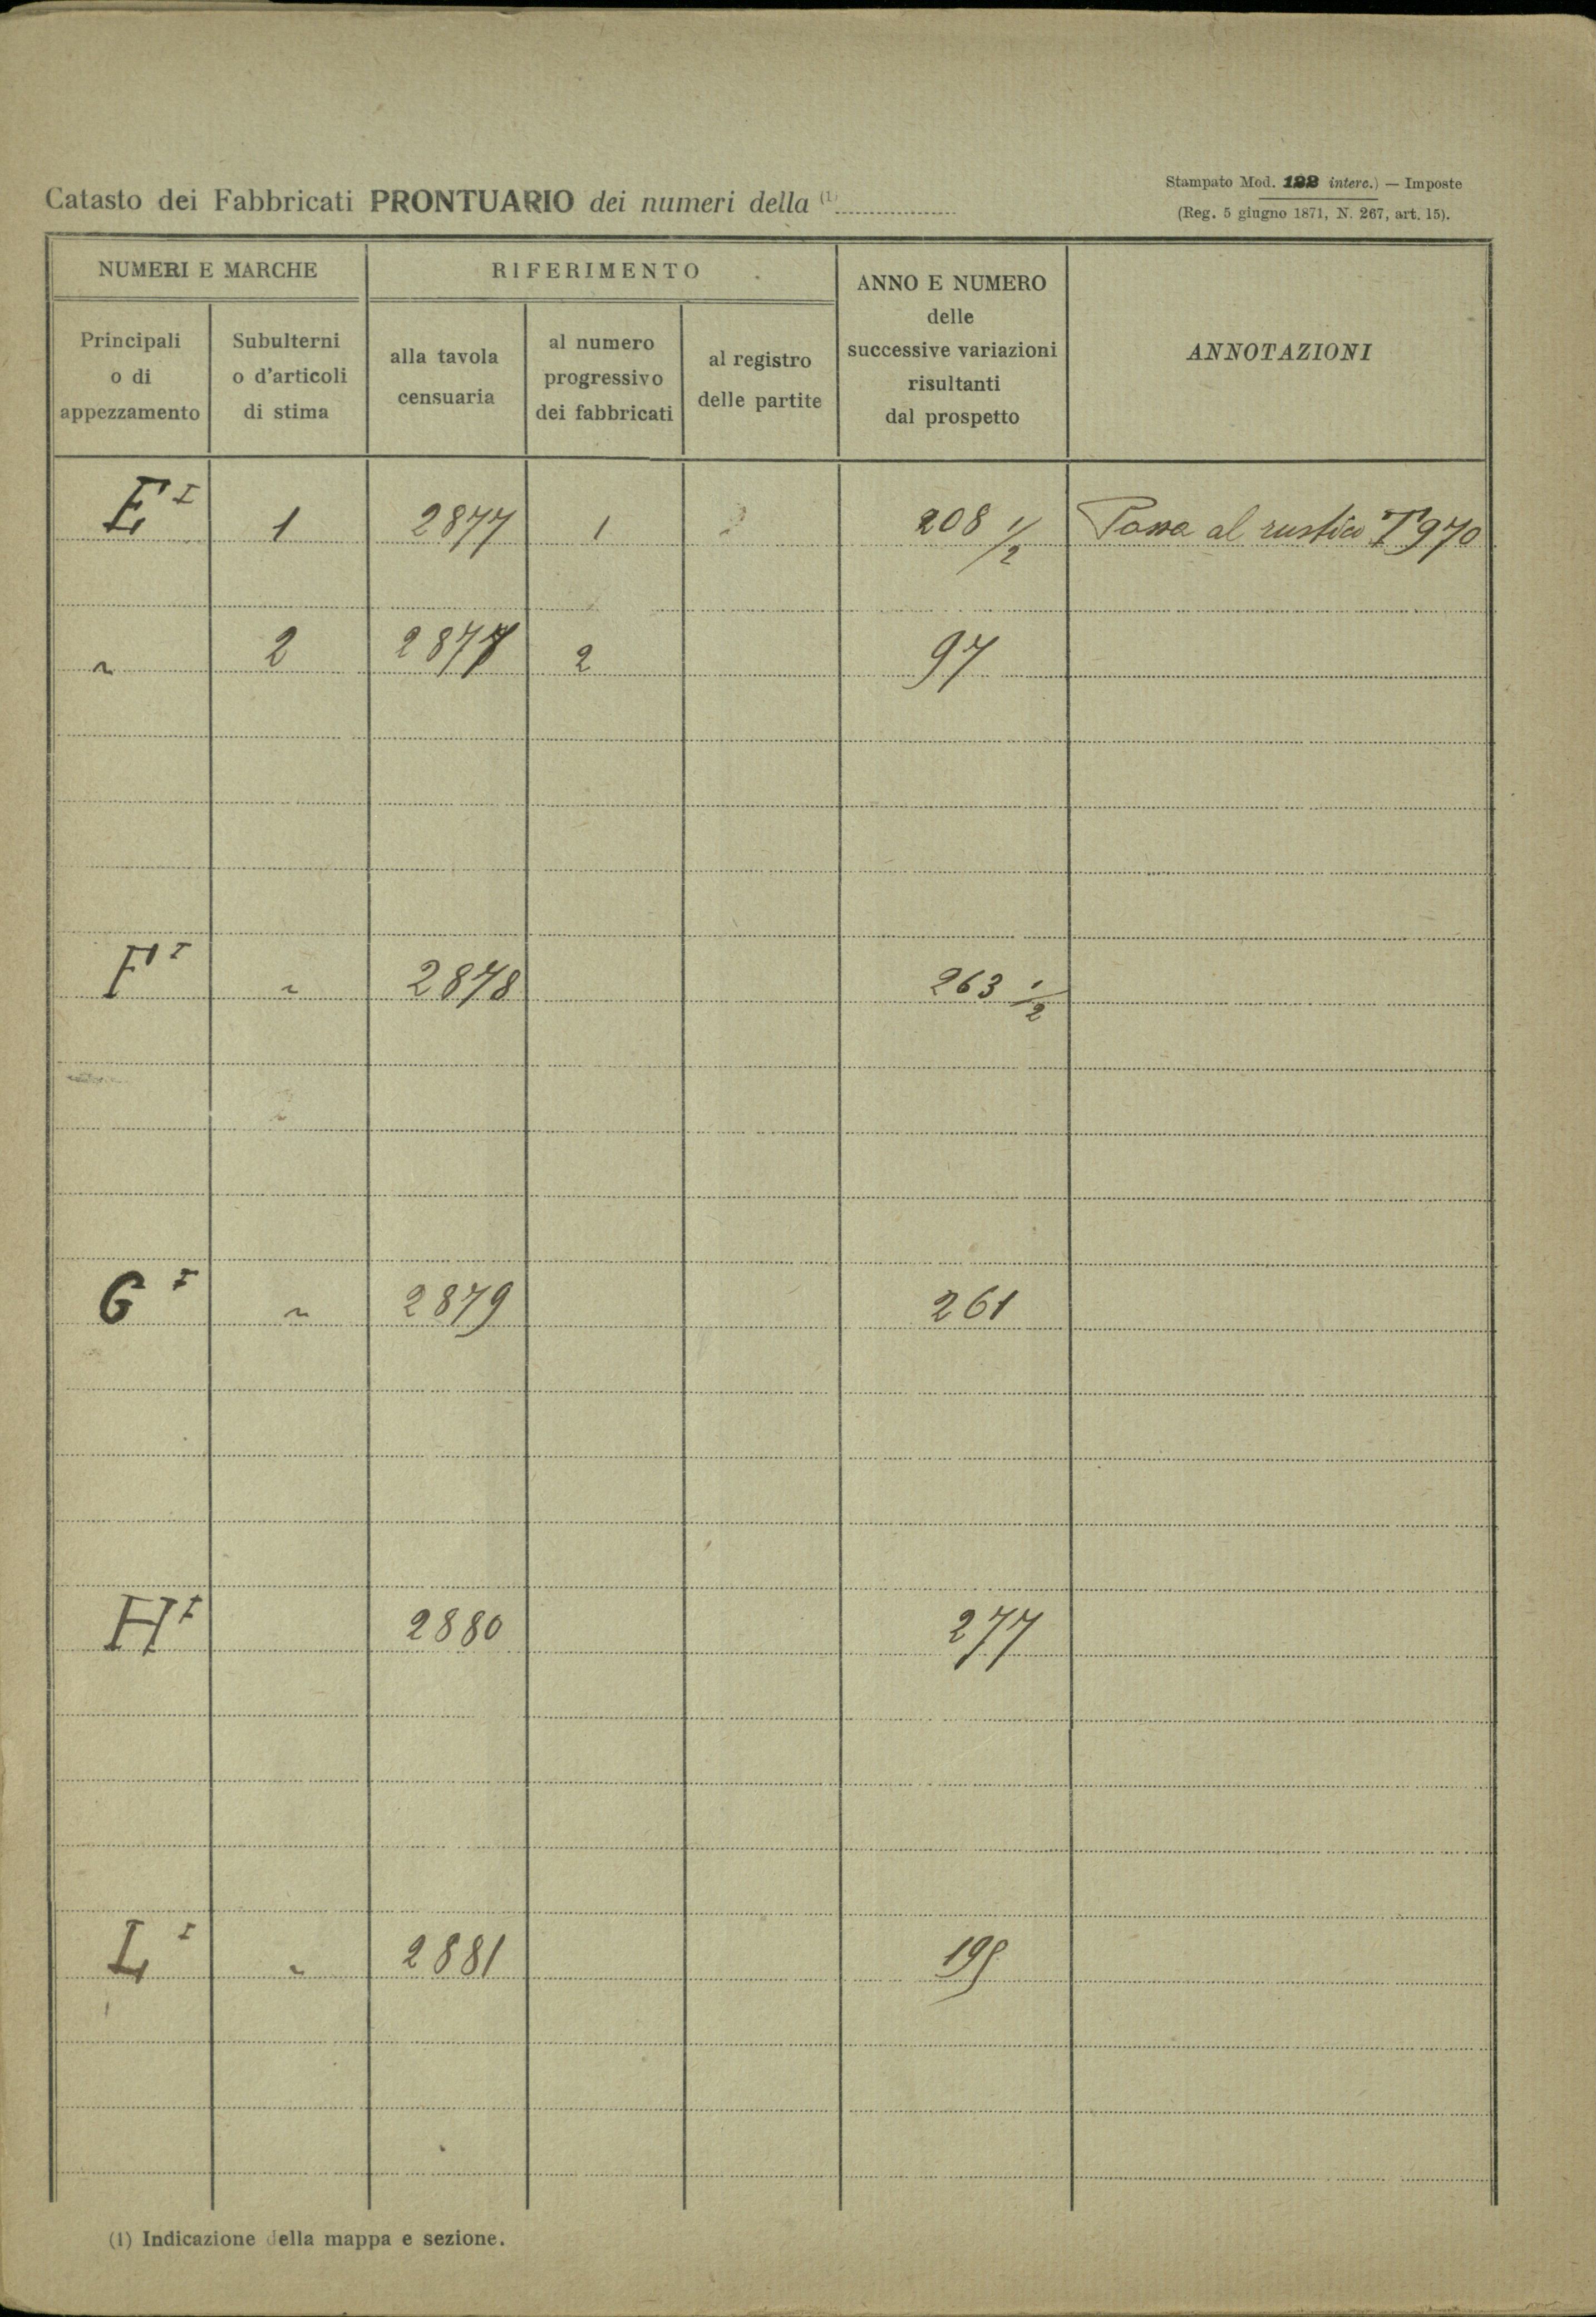 Catasto dei Fabbricati PRONTUARIO dei numeri della (1)
Stampato Mod. 122 interc.) — Imposte
(Reg. 5 giugno 1871, N. 267, art. 15).
NUMERI E MARCHE
RIFERIMENTO
ANNO E NUMERO
delle
successive variazioni
risultanti
dal prospetto
ANNOTAZIONI
Principali
o di
appezzamento
Subulterni
o d'articoli
di stima
alla tavola
censuaria
al numero
progressivo
dei fabbricati
al registro
delle partite
E I 1 2877 1 208 1/2 Passa al rustico T 970
" 2 2877 2 97
F I " 2878 263 1/2
G I " 2879 261
H I 2880 277
L I " 2881
(1) Indicazione della mappa e sezione.